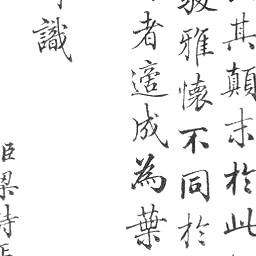 其顛末於此
雅懷不同於
者適成為葉
識
臣梁詩正